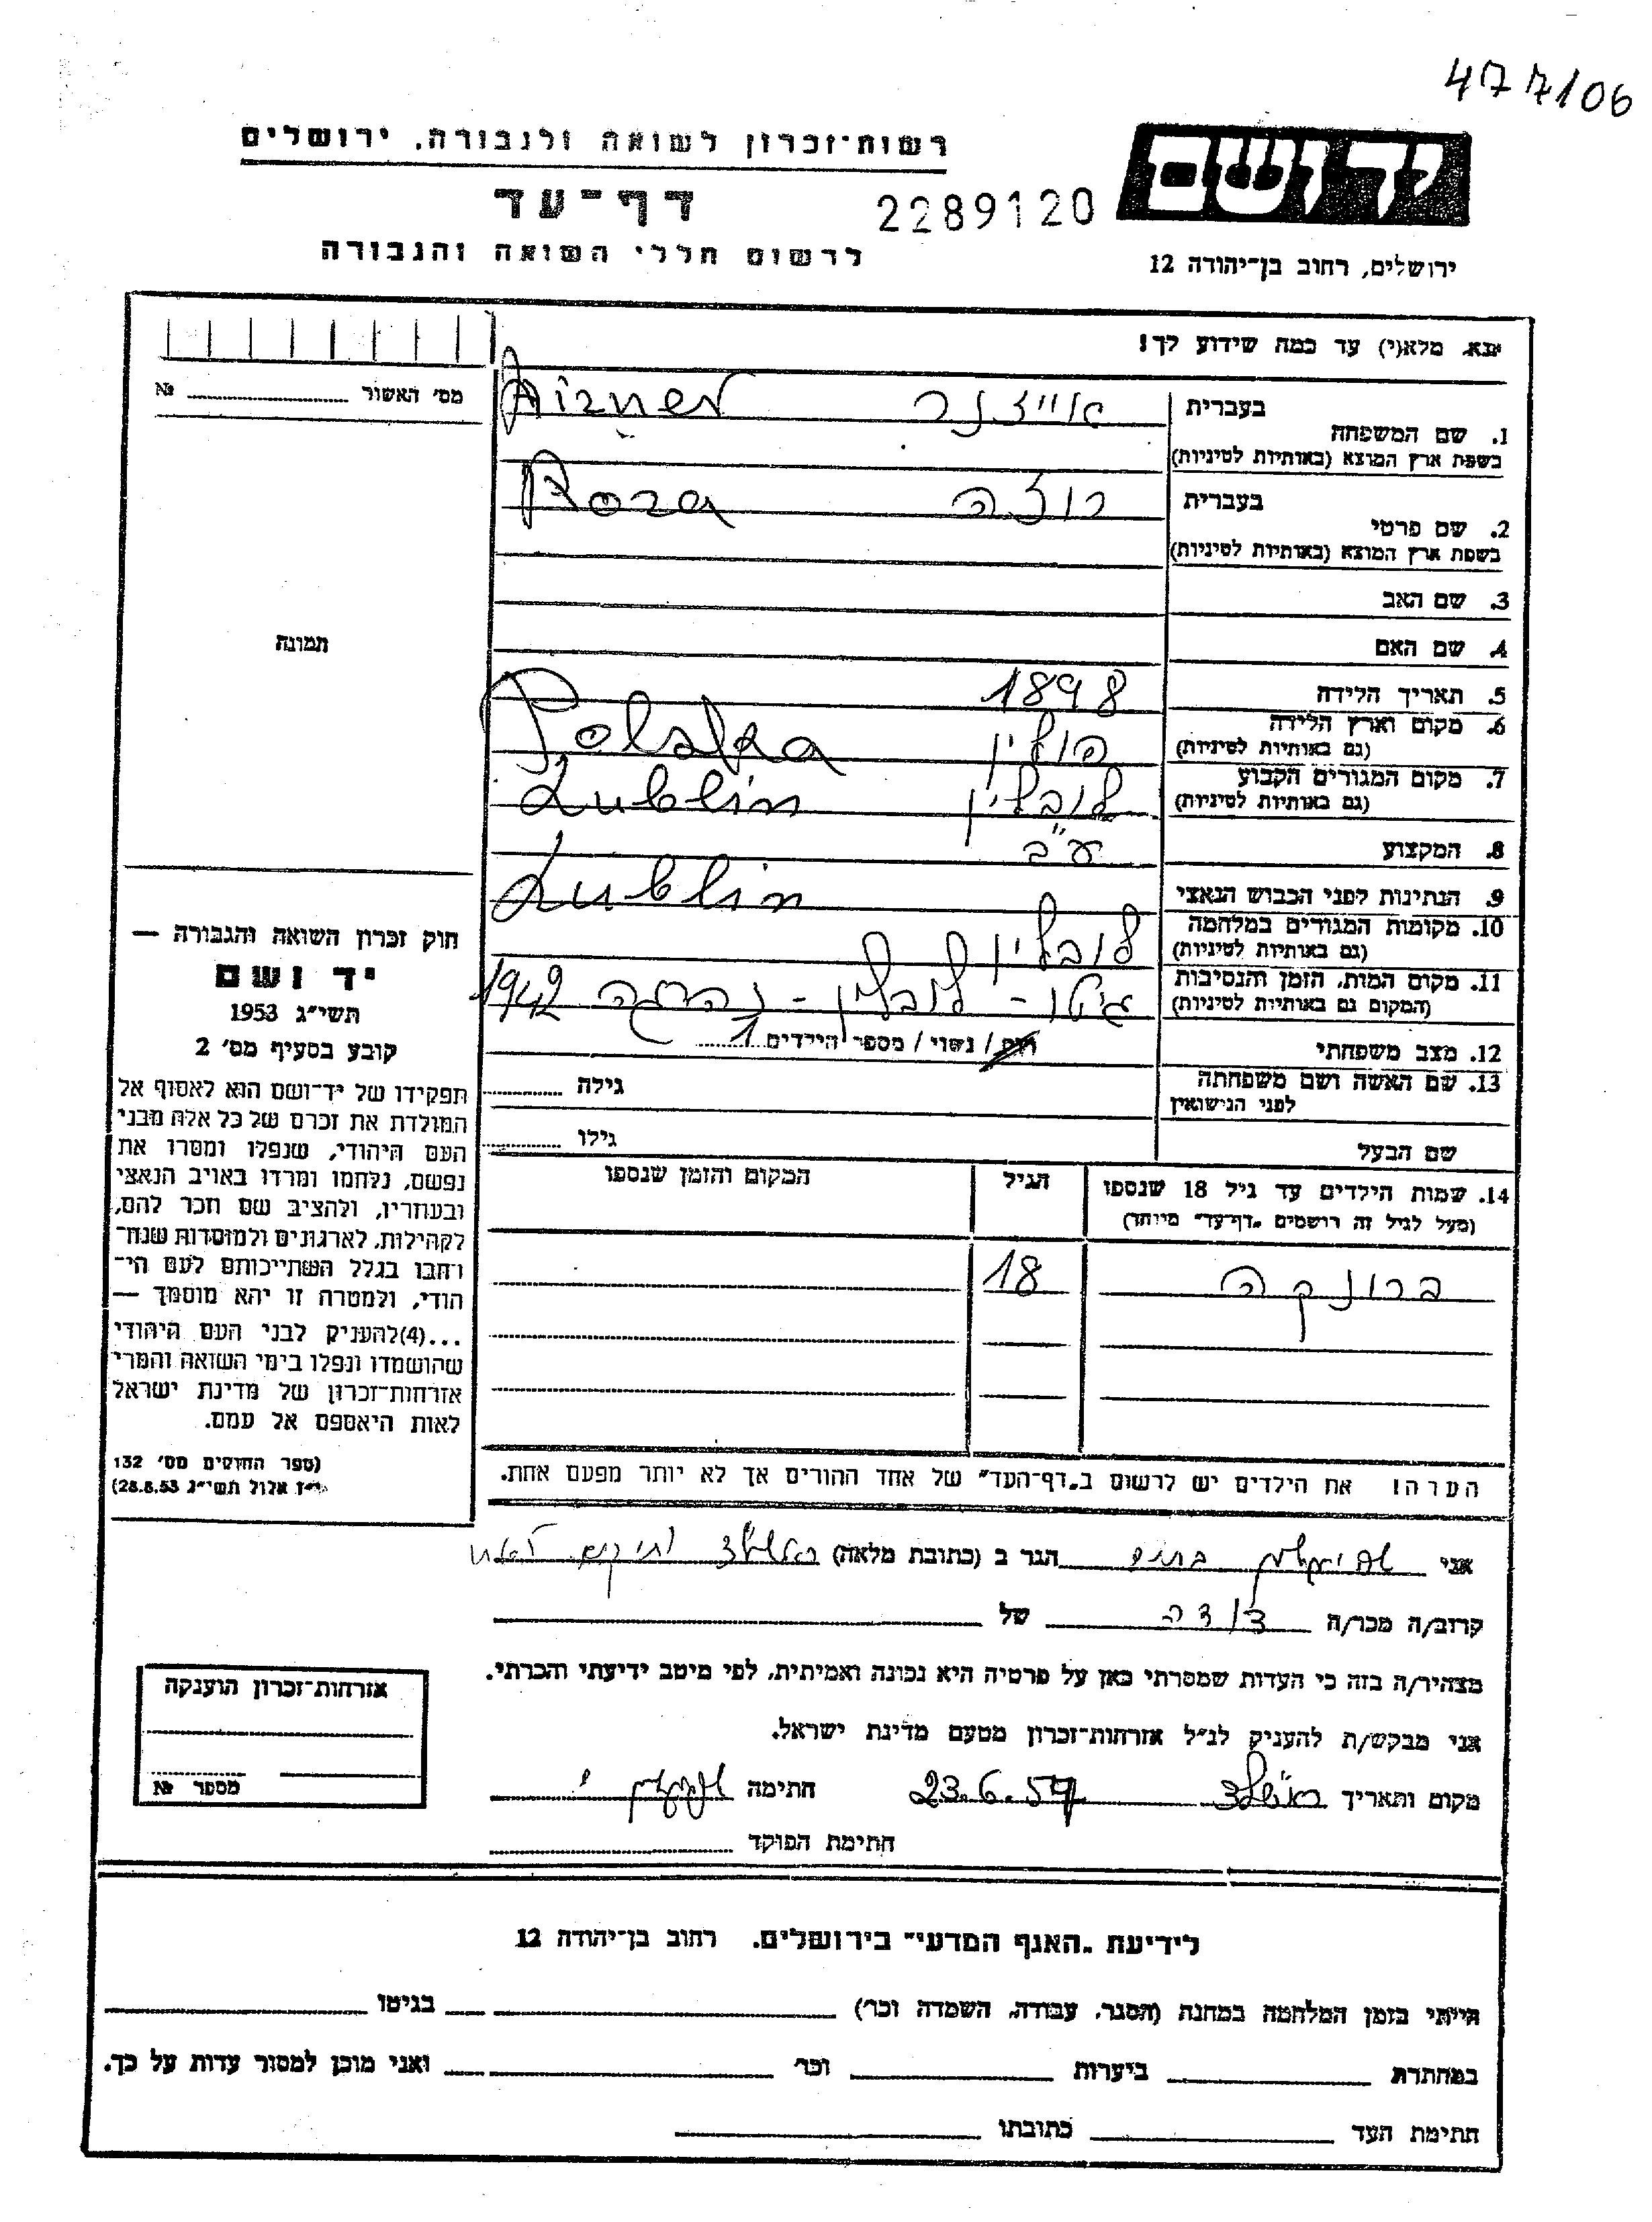 477/06
רשות־זכרון לשואה ולגבורה, ירושלים
יד ושם
דף־עד
2289120
לרשום חללי השואה והגבורה
ירושלים, רחוב בן־יהודה 12
אנא, מלא(י) עד כמה שידוע לך!
מס׳ האשור № 
1. שם המשפחה בעברית אייזנר Aizner
בשפת ארץ המוצא (באותיות לטיניות)
2. שם פרטי בעברית רוזה Roza
בשפת ארץ המוצא (באותיות לטיניות)
3. שם האב
4. שם האם
תמונה
5. תאריך הלידה 1898
6. מקום וארץ הלידה פולין Polska
(גם באותיות לטיניות)
7. מקום המגורים הקבוע לובלין Lublin
(גם באותיות לטיניות)
8. המקצוע ע"ב
9. הנתינות לפני הכבוש הנאצי
10. מקומות המגורים במלחמה לובלין Lublin
(גם באותיות לטיניות)
11. מקום המות, הזמן והנסיבות גיטו - לובלין - נהרגה 1942
(המקום גם באותיות לטיניות)
12. מצב משפחתי רווק / נשוי / מספר הילדים 1
13. שם האשה ושם משפחתה גילה
לפני הנישואין
שם הבעל גילו
14. שמות הילדים עד גיל 18 שנספו הגיל המקום והזמן שנספו
(מעל לגיל זה רושמים „דף־עד" מיוחד)
ברונקה 18
הערה! את הילדים יש לרשום ב„דף־העד" של אחד ההורים אך לא יותר מפעם אחת.
חוק זכרון השואה והגבורה —
יד ושם
תשי"ג 1953
קובע בסעיף מס׳ 2
תפקידו של יד־ושם הוא לאסוף אל
המולדת את זכרם של כל אלה מבני
העם היהודי, שנפלו ומסרו את
נפשם, נלחמו ומרדו באויב הנאצי
ובעוזריו, ולהציב שם וזכר להם,
לקהילות, לארגונים ולמוסדות שנח־
רבו בגלל השתייכותם לעם הי־
הודי, ולמטרה זו יהא מוסמך —
...(4)להעניק לבני העם היהודי
שהושמדו ונפלו בימי השואה והמרי
אזרחות־זכרון של מדינת ישראל
לאות היאספם אל עמם.
(ספר החוקים מס׳ 132
י"ז אלול תשי"ג 28.8.53)
אני הגר ב (כתובת מלאה)
קרוב/ה מכר/ה דודה של
מצהיר/ה בזה כי העדות שמסרתי כאן על פרטיה היא נכונה ואמיתית, לפי מיטב ידיעתי והכרתי.
אני מבקש/ת להעניק לנ"ל אזרחות־זכרון מטעם מדינת ישראל.
מקום ותאריך 23.6.57 חתימה
חתימת הפוקד
אזרחות־זכרון הוענקה
מספר №
לידיעת „האגף המדעי" בירושלים, רחוב בן־יהודה 12
הייתי בזמן המלחמה במחנה (הסגר, עבודה, השמדה וכו׳) בגיטו
במחתרת ביערות וכו׳ ואני מוכן למסור עדות על כך.
חתימת העד כתובתו